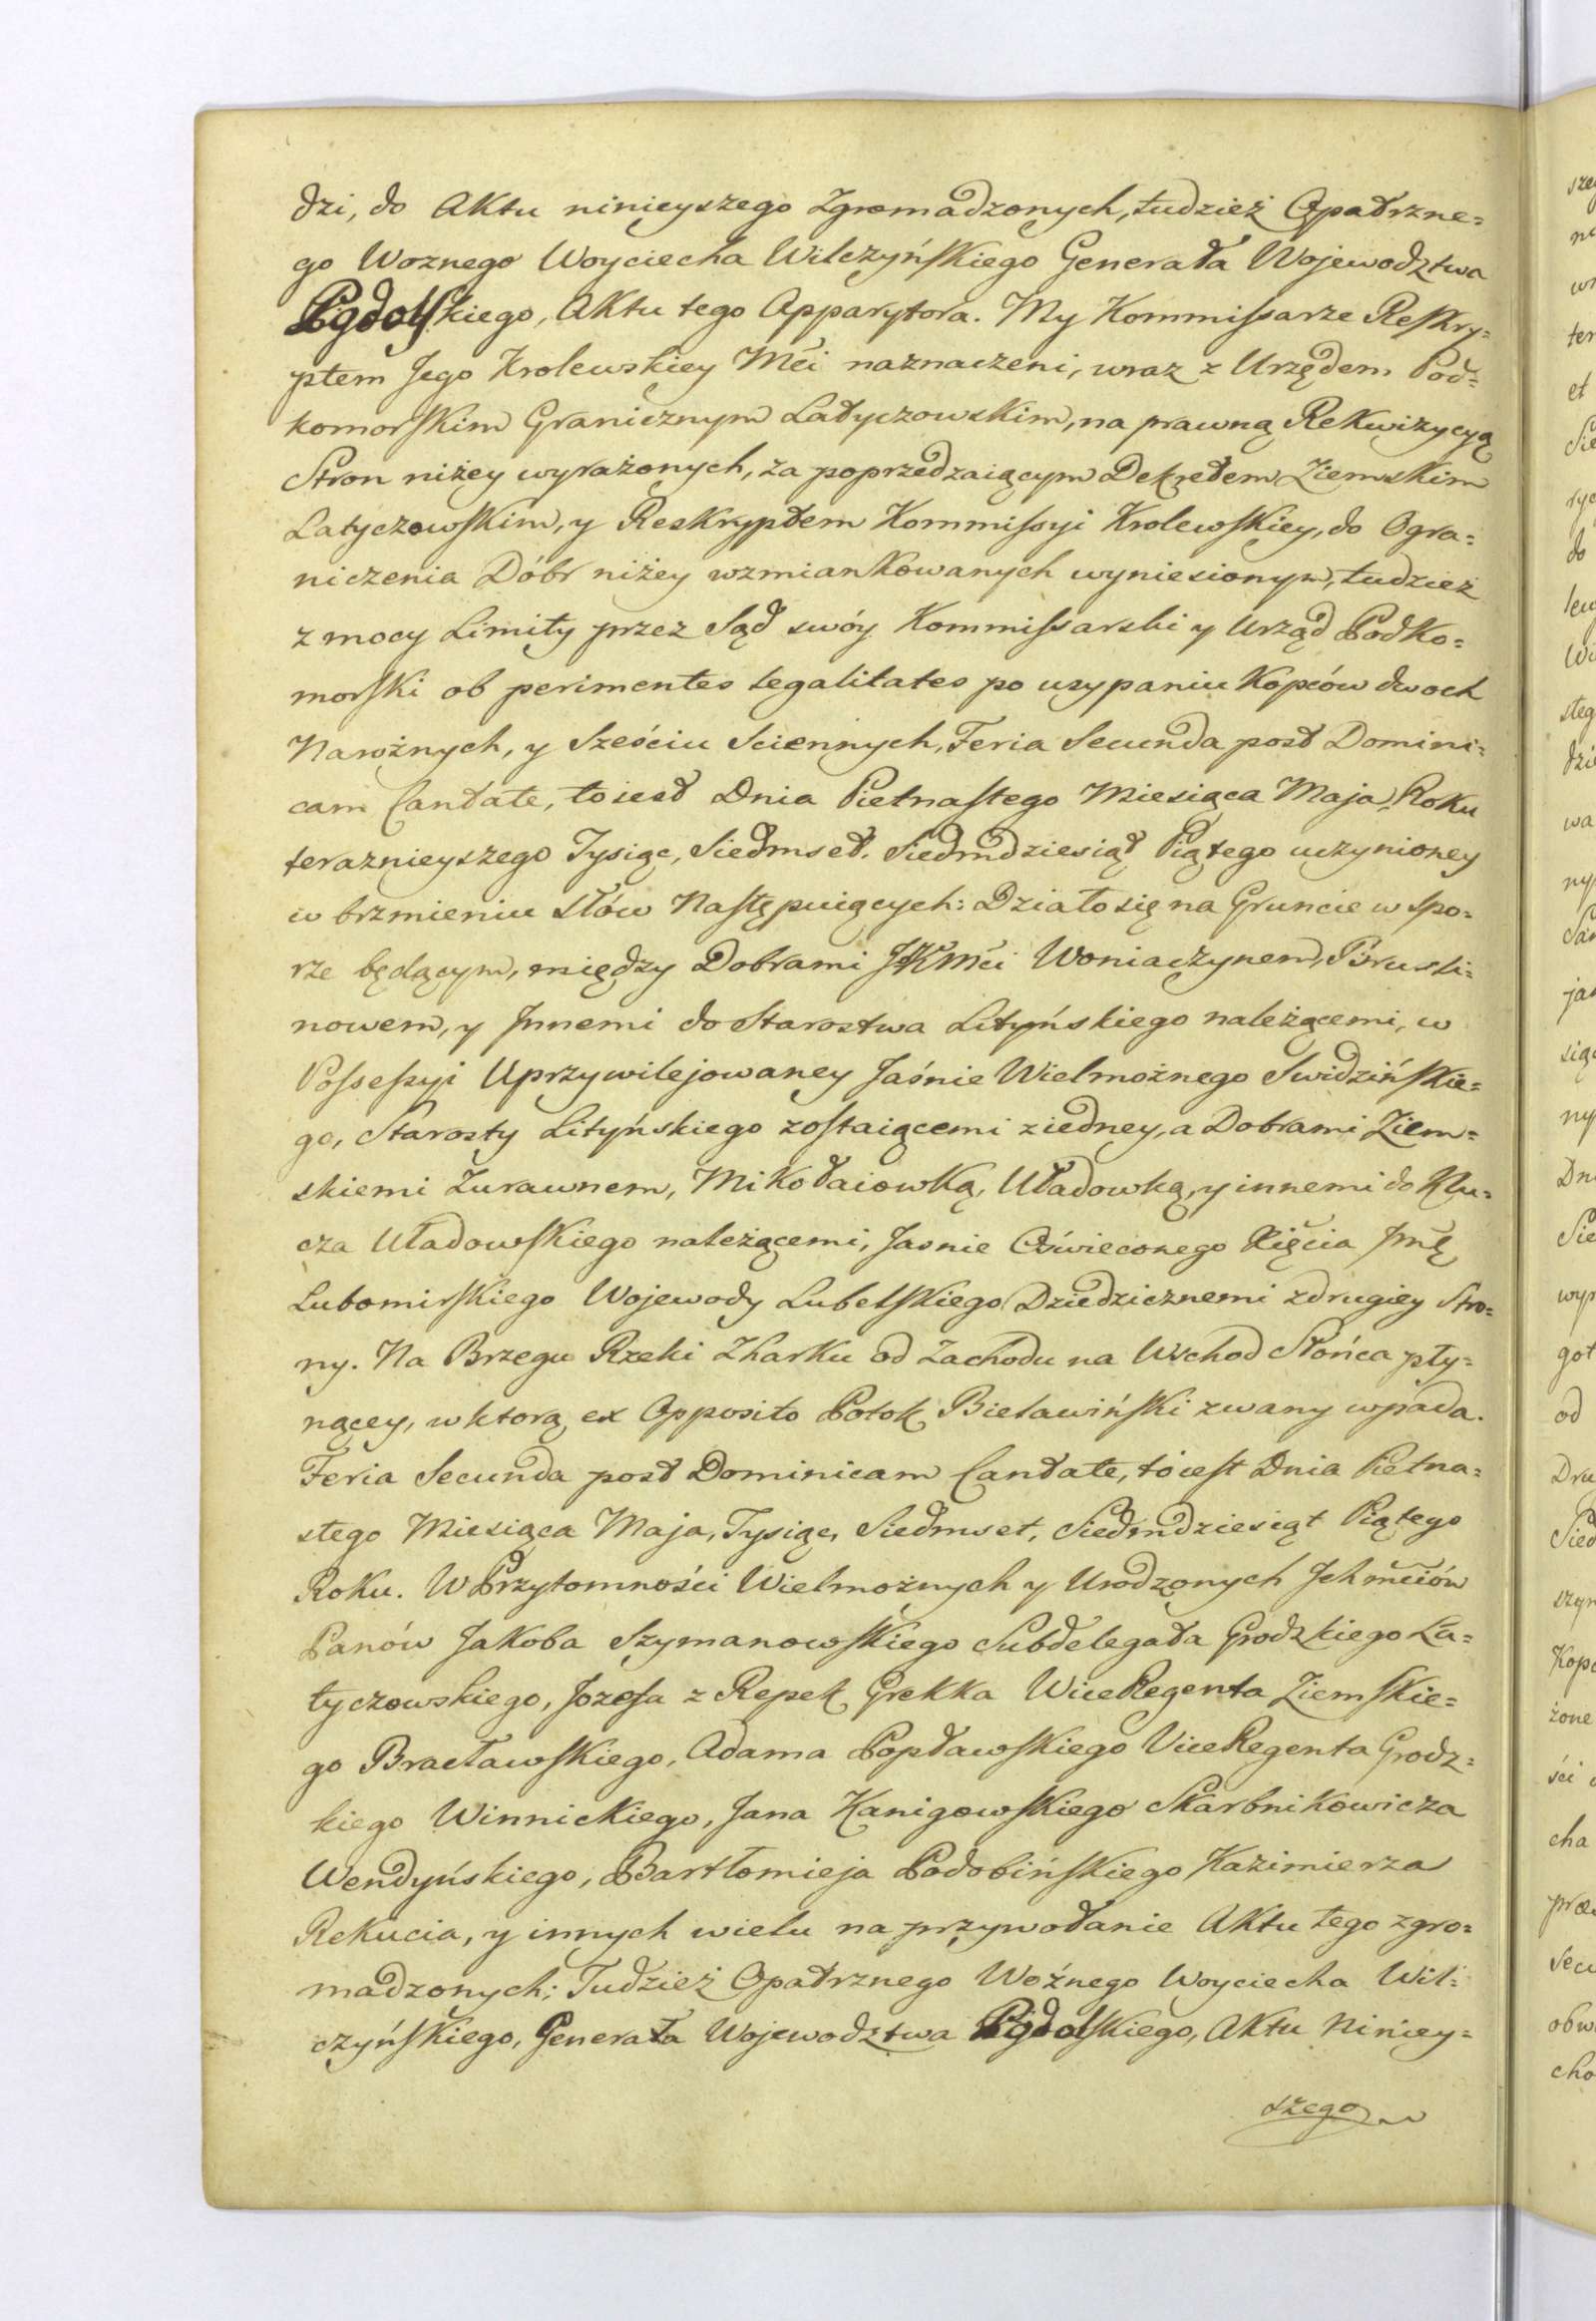 dzi, do Aktu ninieyszego Zgromadzonych, tudzież Opatrzne=
go Woznego Woyciecha Wilczyńskiego Generała Wojewodztwa
Podolskiego, Aktu tego Apparytora. My Kommissarze Reskry=
ptem Jego Krolewskiey Mći naznaczeni, wraz z Urzędem Pod=
komorskim Granicznym Latyczowskim, na prawną Rekwizycyą
Stron niżey wyrażonych, za poprzedzaiącym Dekretem Ziemskim
Latyczowskim, y Reskryptem Kommissyi Krolewskiey, do Ogra=
niczenia Dóbr niżey wzmiankowanych wyniesionym, tudzież
z mocy Limity przez Sąd swóy Kommissarski y Urząd Podko=
morski ob perimentes legalitates po usypaniu Kopców dwoch
Narożnych, y Sześciu Sciennych, Feria Secunda post Domini=
cam Cantate, to iest Dnia Pietnastego Miesiąca Maja Roku
teraznieyszego Tysiąc, Siedmset, Siedmdziesiąt Piątego uczynioney
w brzmieniu słów Następuiących: Działo się na Gruncie w spo=
rze będącym, między Dobrami JKMći Woniaczynem, Pruski=
nowem, y Innemi do Starostwa Lityńskiego należącemi, w
Possessyi Uprzywilejowaney Jaśnie Wielmożnego Swidzińskie=
go, Starosty Lityńskiego zostaiącemi z iedney, a Dobrami Ziem=
skiemi Zurawnem, Mikołaiowką, Uładowką, y innemi do Klu=
cza Uładowskiego należącemi, Jasnie Oświeconego Xięcia Jmć
Lubomirskiego Wojewody Lubelskiego Dziedzicznemi z drugiey Stro=
ny. Na Brzegu Rzeki Zharku od Zachodu na Wschod Słońca pły=
nącey, w ktorą ex Opposito Potok Bielawiński zwany wpada.
Feria Secunda post Dominicam Cantate, to iest Dnia Pietna=
stego Miesiąca Maja, Tysiąc, Siedmset, Siedmdziesiąt Piątego
Roku. W Przytomności Wielmożnych y Urodzonych Jchmćiów
Panów Jakoba Szymanowskiego Subdelegata Grodzkiego La=
tyczowskiego, Jozefa z Repek Grekka ViceRegenta Ziemskie=
go Bracławskiego, Adama Popławskiego ViceRegenta Grodz=
kiego Winnickiego, Jana Kanigowskiego Skarbnikowicza
Wendyńskiego, Bartłomieja Podobińskiego Kazimierza
Rekucia, y innych wielu na przywołanie Aktu tego zgro=
madzonych; Tudzież Opatrznego Woźnego Woyciecha Wil=
czyńskiego, Generała Wojewodztwa Podolskiego, Aktu Niniey=
szego